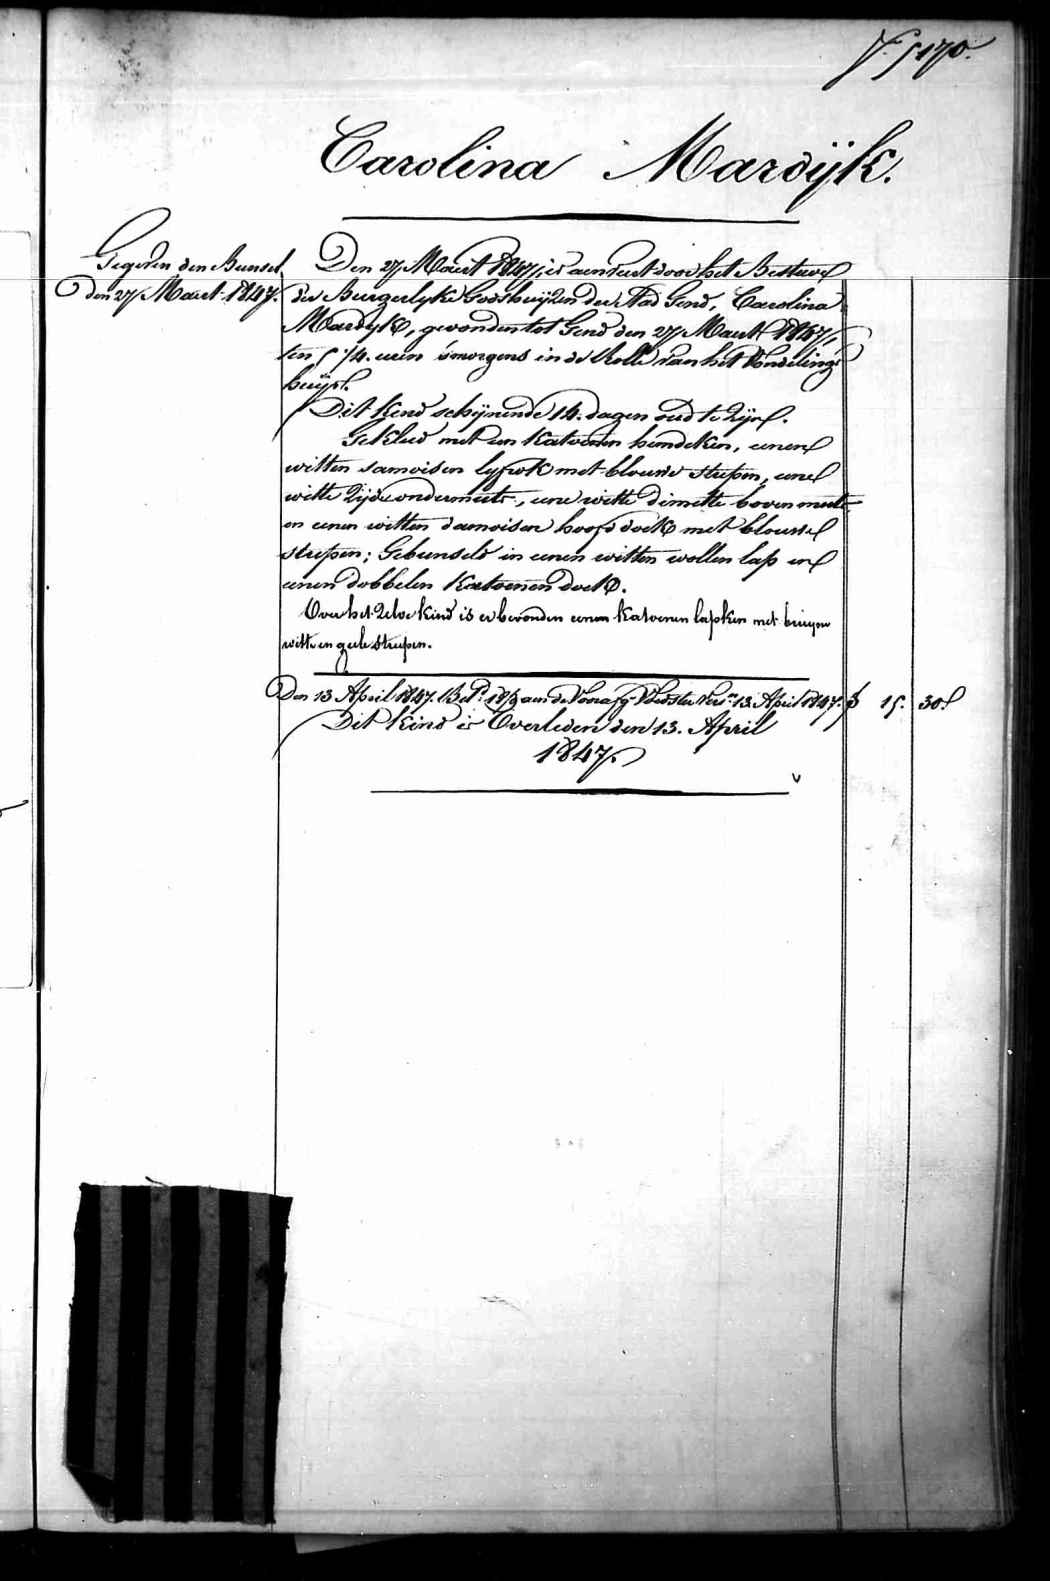 Carolina Mardijk.
Gegeven den Bunsel
den 27 Maart 1847.
Den 27 Maart 1847, is aenveert door het Bestuer
der Burgerlyke Godshuijzen der Stad Gend, Carolina
Mardyk, gevonden tot Gend den 27 Maart 1847,
ten 5 1/4 uren 's morgens in de Rolle van het Vondeling
huijs.
Dit Kind schijnende 14. dagen oud te zijn.
Gekleed met een Katoenen hemdeken, eenen
witten samoisen lyfrok met blouwe strepen, eene
witte zijde ondermuts, eene witte dimitte bovenmuts
en eenen witten damoisen hoofddoek met blouwe
strepen; Gebunseld in eenen witten wollen lap en
eenen dobbelen Katoenen doek.
Over het zelve kind is er bevonden eenen katoenen lapken met bruijne
witte en geele strepen.
Den 13 April 1847. Bet. aan de Voedster 13 April 1847. 15. 30
Dit Kind is Overleden den 13. April
1847.